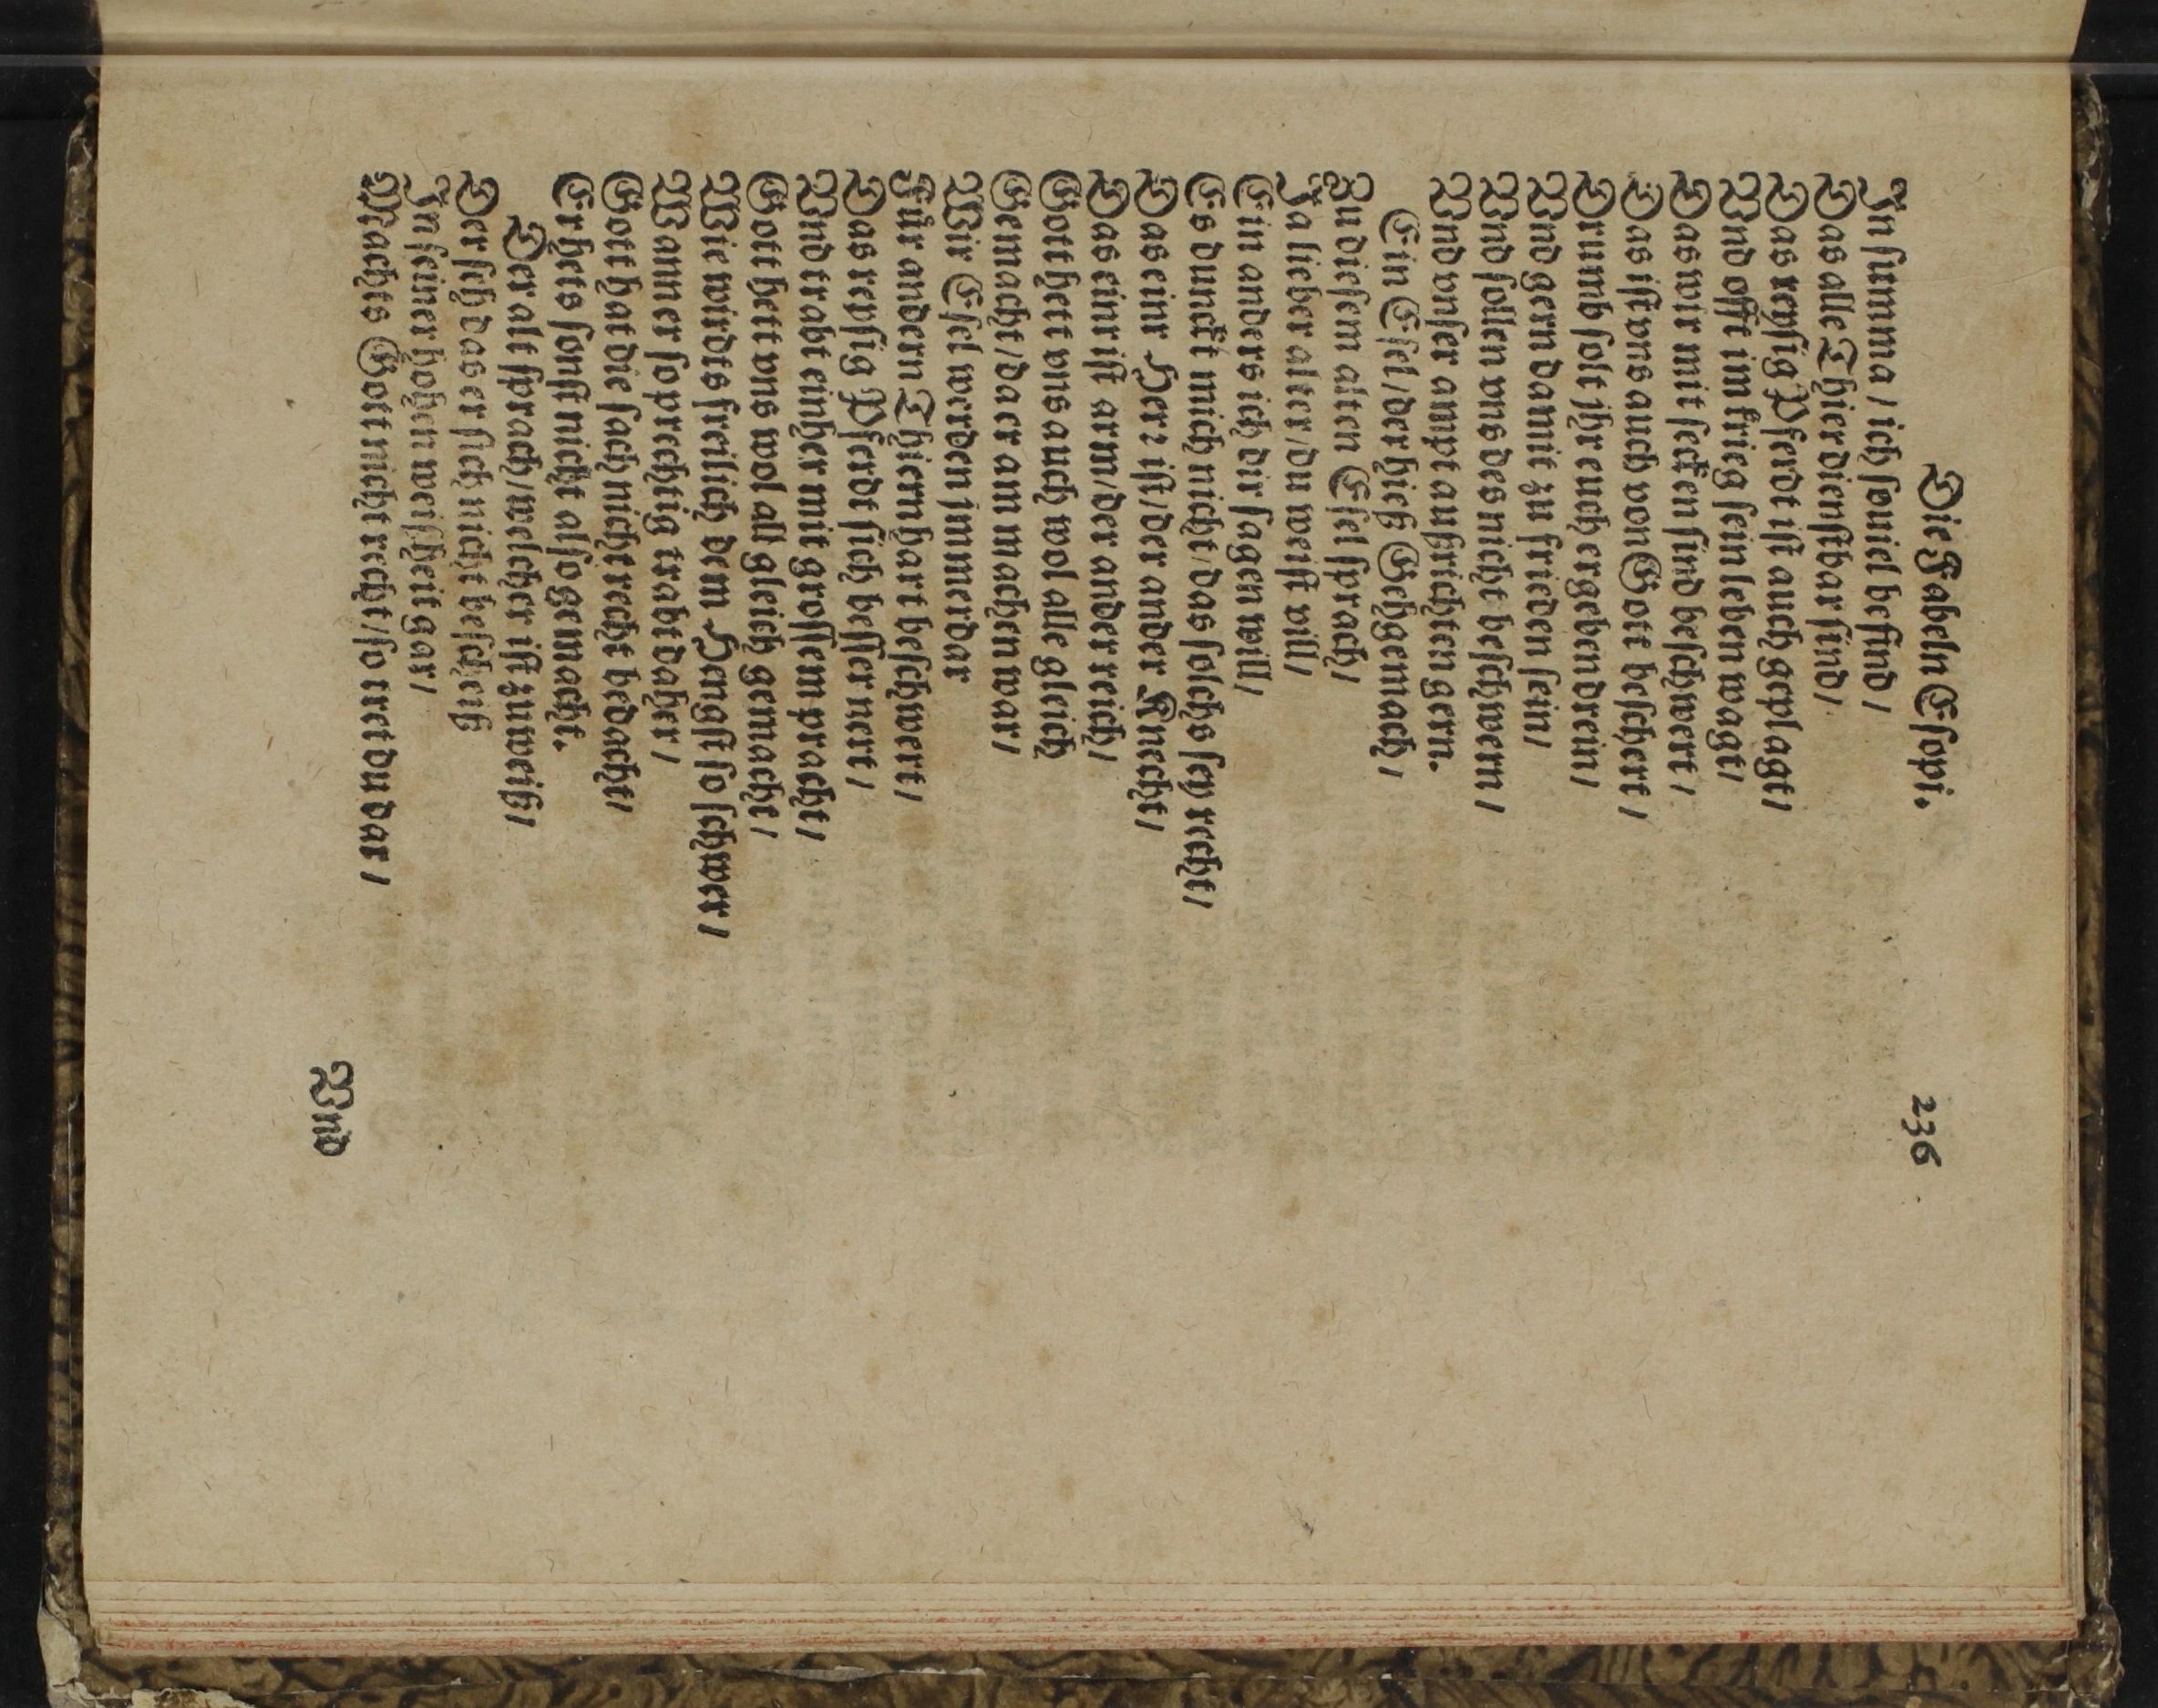 Die Fabeln Eſopi. 236
In ſumma / ich ſouiel befind /
Das alle Thier dienſtbar ſind /
Das reyſig Pferdt iſt auch geplagt /
Vnd offt im krieg ſein leben wagt /
Das wir mit ſecken ſind beſchwert /
Das iſt vns auch von Gott beſchert /
Drumb ſolt jhr euch ergeben drein /
Vnd gern damit zu frieden ſein /
Vnd ſollen vns des nicht beſchwern /
Vnd vnſer ampt außrichten gern.
Ein Eſel / der hieß Gehgemach /
Zu dieſem alten Eſel ſprach /
Ja lieber alter / du weiſt vill /
Ein anders ich dir ſagen will /
Es dunckt mich nicht / das ſolchs ſey recht /
Das einr Herꝛ iſt / der ander Knecht /
Das einr iſt arm / der ander reich /
Gott hett vns auch wol alle gleich
Gemacht / da er am machen war /
Wir Eſel werden jmmerdar
Für andern Thiern hart beſchwert /
Das reyſig Pferdt ſich beſſer nert /
Vnd trabt einher mit groſſem pracht /
Gott hett vns wol all gleich gemacht /
Wie wirdts freilich dem Hengſt ſo ſchwer /
Wann er ſo prechtig trabt daher /
Gott hat die ſach nicht recht bedacht /
Er hets ſonſt nicht alſo gemacht.
Der alt ſprach / welcher iſt zu weiß /
Der ſeh das er ſich nicht beſcheiß
In ſeiner hohen weiſheit gar /
Machts Gott nicht recht / ſo tret du dar /
Vnd